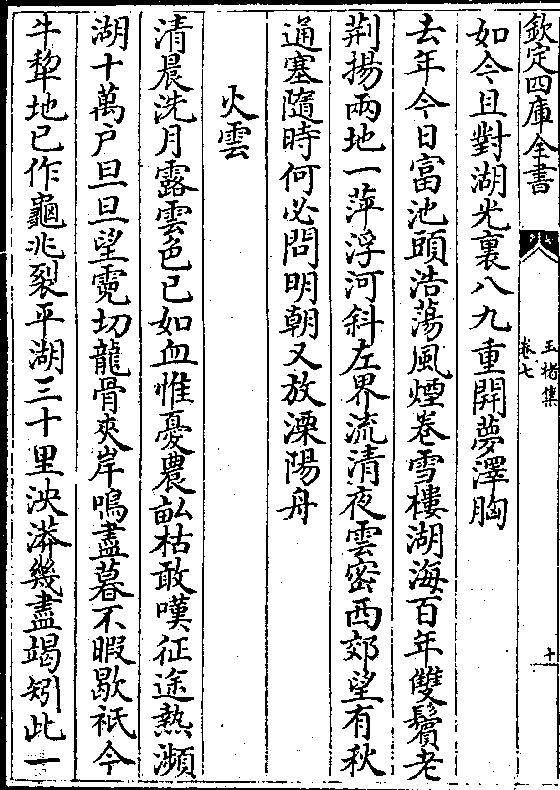 欽定四庫全書
玉楮集
卷七
十
如今且對湖光裏八九重開夢澤胸
去年今日富池頭浩蕩風煙卷雪樓湖海百年雙鬢老
荆揚兩地一萍浮河斜左界流清夜雲密西郊望有秋
通塞隨時何必問明朝又放溧陽舟
火雲
清晨洗月露雲色已如血惟憂農畝枯敢嘆征途熱瀕
湖十萬户旦旦望霓切龍骨夾岸鳴盡暮不暇歇祇今
牛犂地已作龜兆裂平湖三十里泱漭幾盡竭矧此一